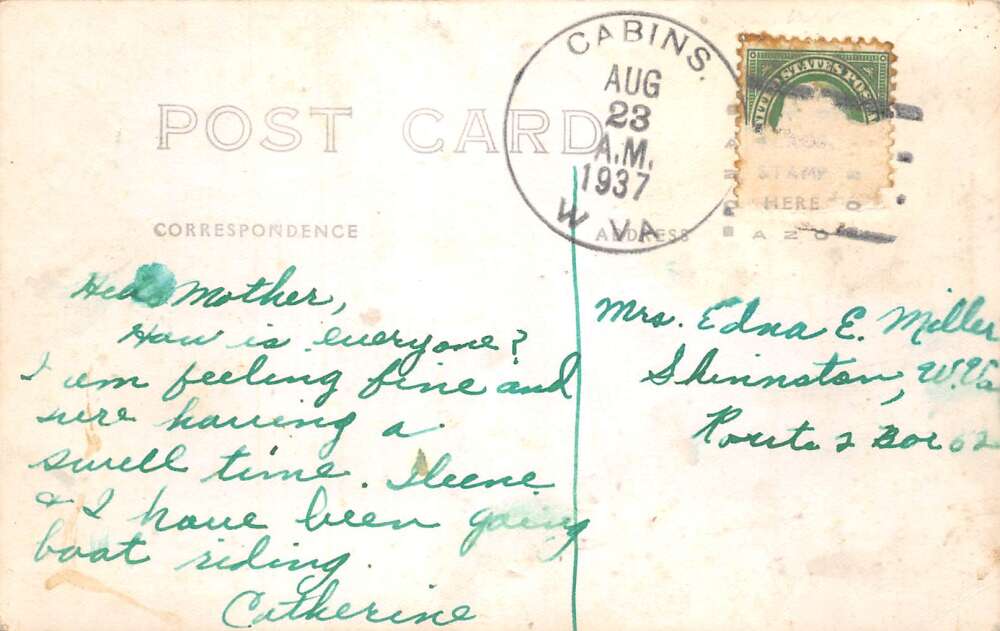 POST CARD
CABINS.
AUG
23
A.M.
1937
W. VA
UNITED STATES POSTAGE
STAMP
HERE
AZO
CORRESPONDENCE
ADDRESS
Mother,
How is everyone?
I am feeling fine and
sure having a
swell time. Ileene
& I have been going
boat riding.
Catherine
Mrs. Edna E. Miller
Shinnston, W.Va
Route 2 Box 62